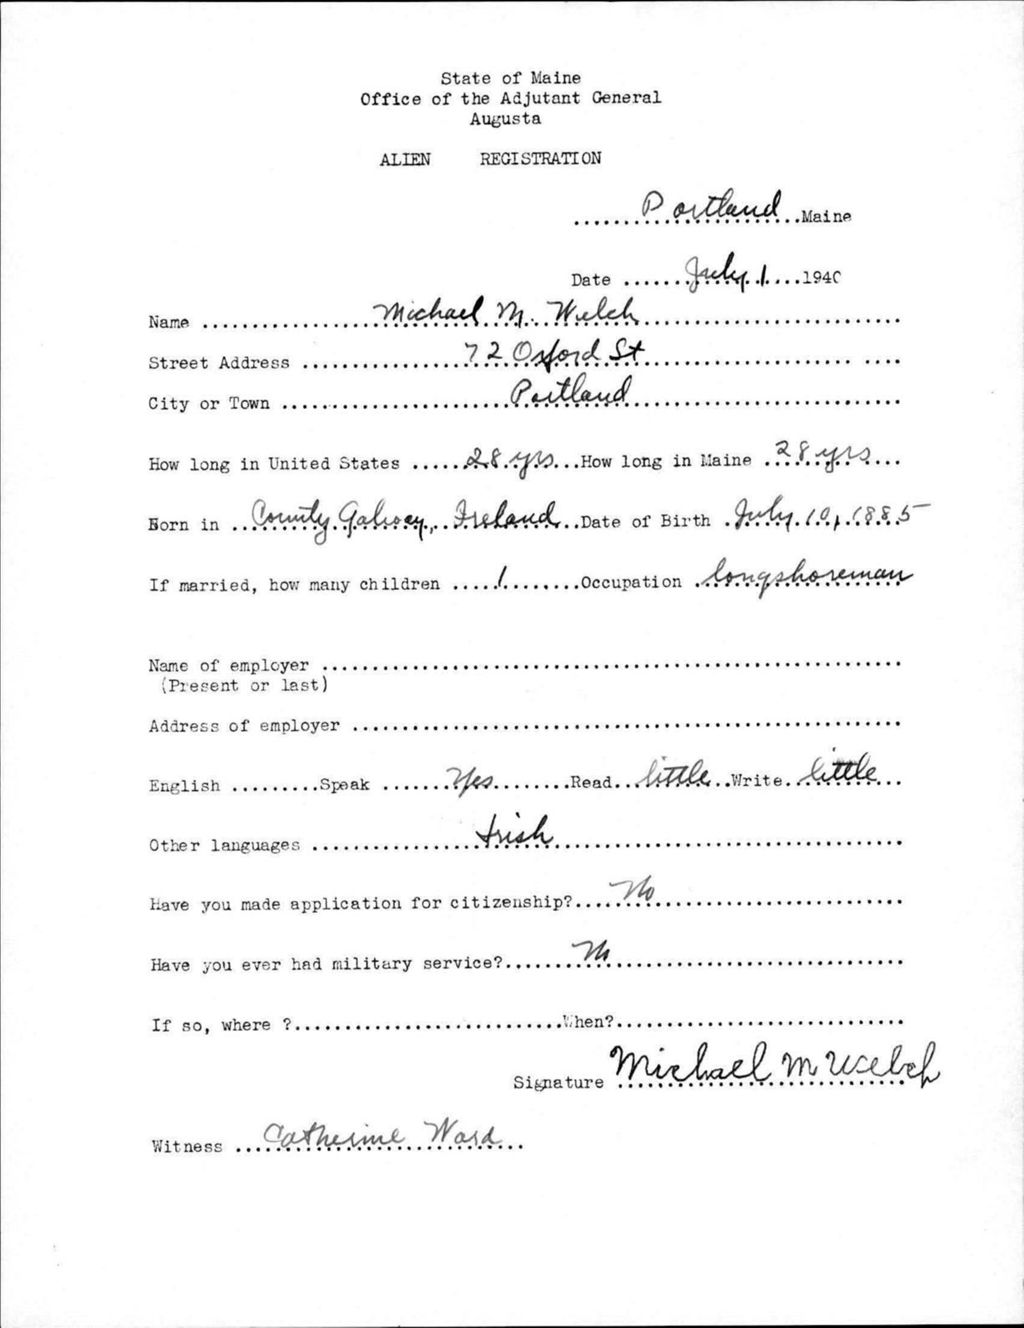 State of Maine
Office of the Adjutant General
Augusta
ALIEN REGISTRATION
.......Portland..Maine
Date .......July 1....1940
Name .................Michael M. Welch..........................
Street Address .................72 Oxford St..................... ....
City or Town .......................Portland...........................
How long in United States ......28 yrs...How long in Maine .28 yrs...
Born in ..County Galway, Ireland..Date of Birth .July 10, 1885
If married, how many children .....1........Occupation .longshoreman
Name of employer ..........................................................
(Present or last)
Address of employer .......................................................
English .........Speak .......Yes.........Read...little..Write..little...
Other languages .................Irish...................................
Have you made application for citizenship?....No.........................
Have you ever had military service?.......No.............................
If so, where ?...........................When?.............................
Signature Michael M Welch
Witness ....Catherine Ward...